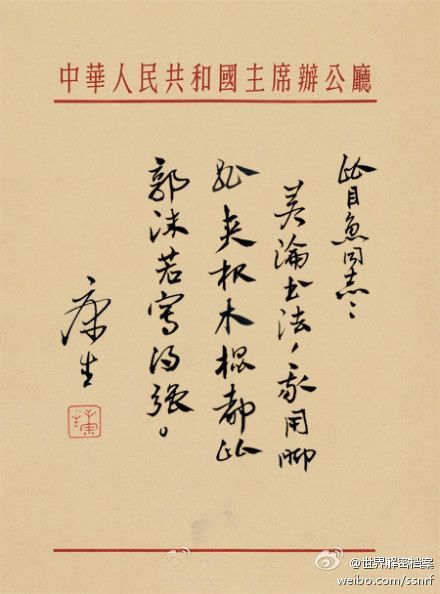 中華人民共和國主席辦公廳
比目魚同志：
若論书法，我用脚
趾夾根木棍都比
郭沫若寫得强。
康生
@世界解密档案
weibo.com/ssnrf